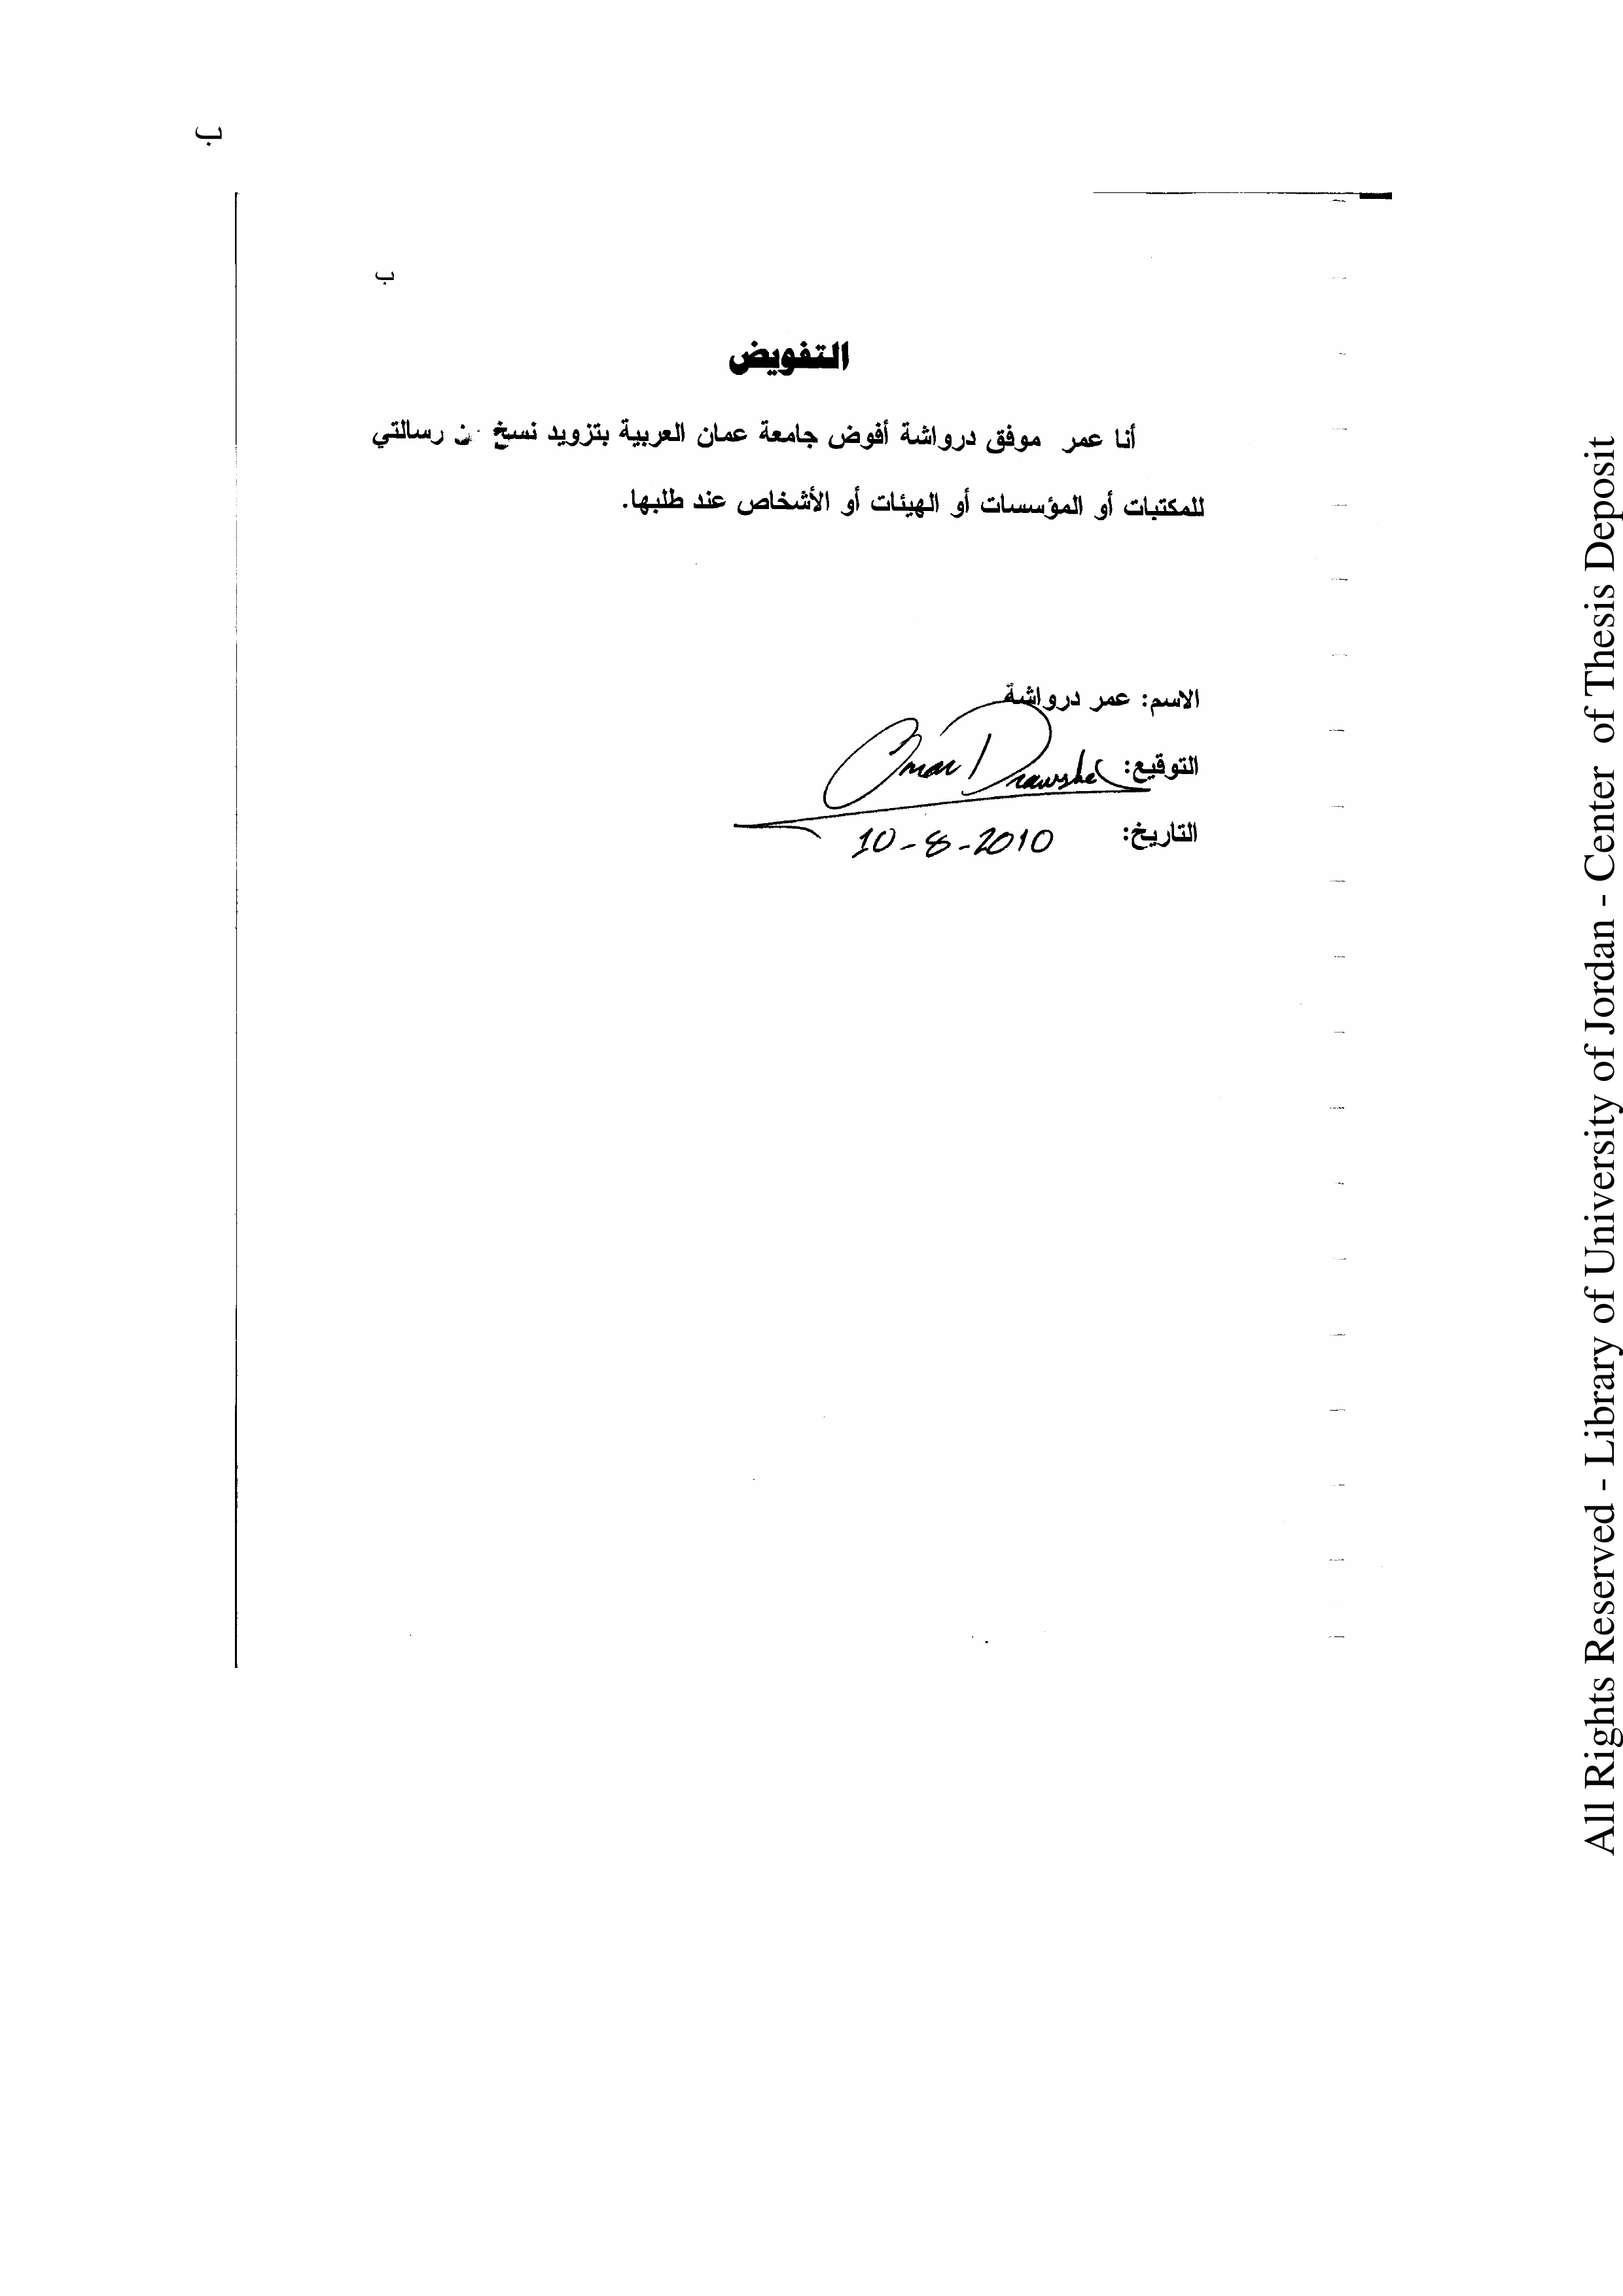 ب
ب
التفويض
أنا عمر موفق درواشة أفوض جامعة عمان العربية بتزويد نسخ رسالتي
للمكتبات أو المؤسسات أو الهيئات أو الأشخاص عند طلبها.
الاسم: عمر درواشة
التوقيع: Omar Drawshe
التاريخ: 10-8-2010
All Rights Reserved - Library of University of Jordan - Center of Thesis Deposit